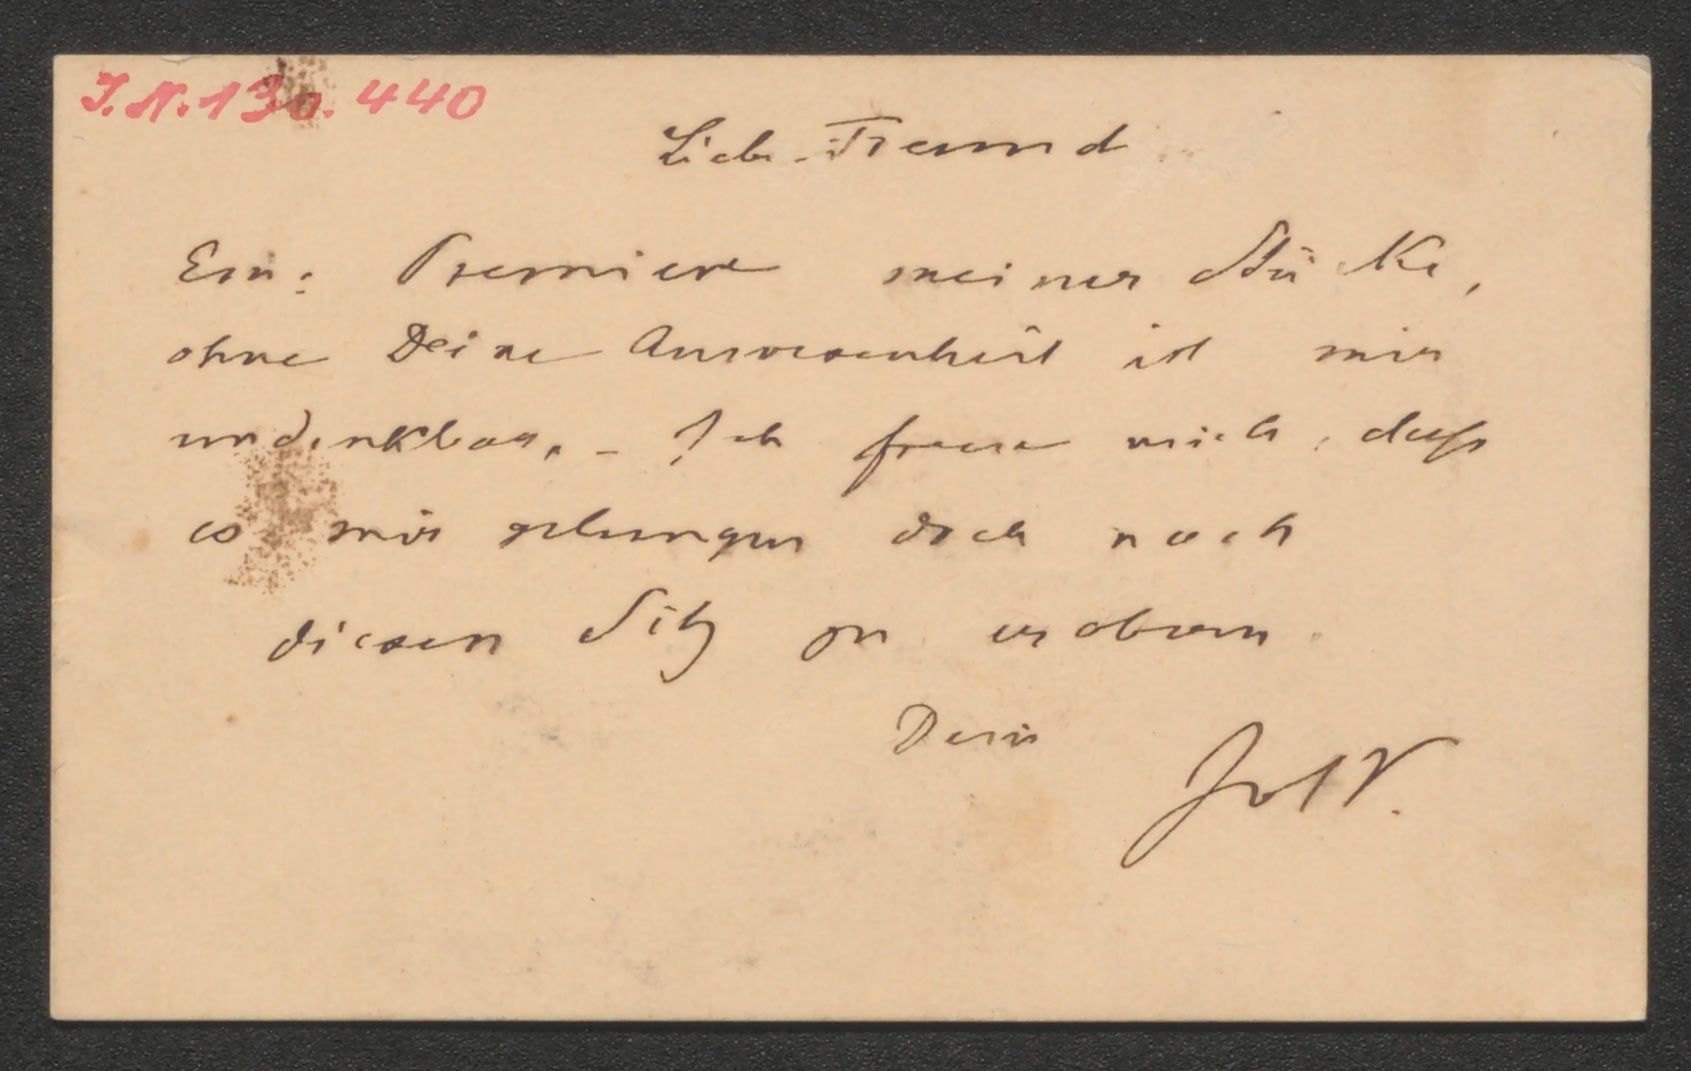 I.N. 130.440
Lieber Freund
Eine Premiere meiner Stücke,
ohne Deine Anwesenheit ist mir
undenkbar. – Ich freue mich, dass
es mir gelungen doch noch
diesen Sitz zu erobern.
Dein